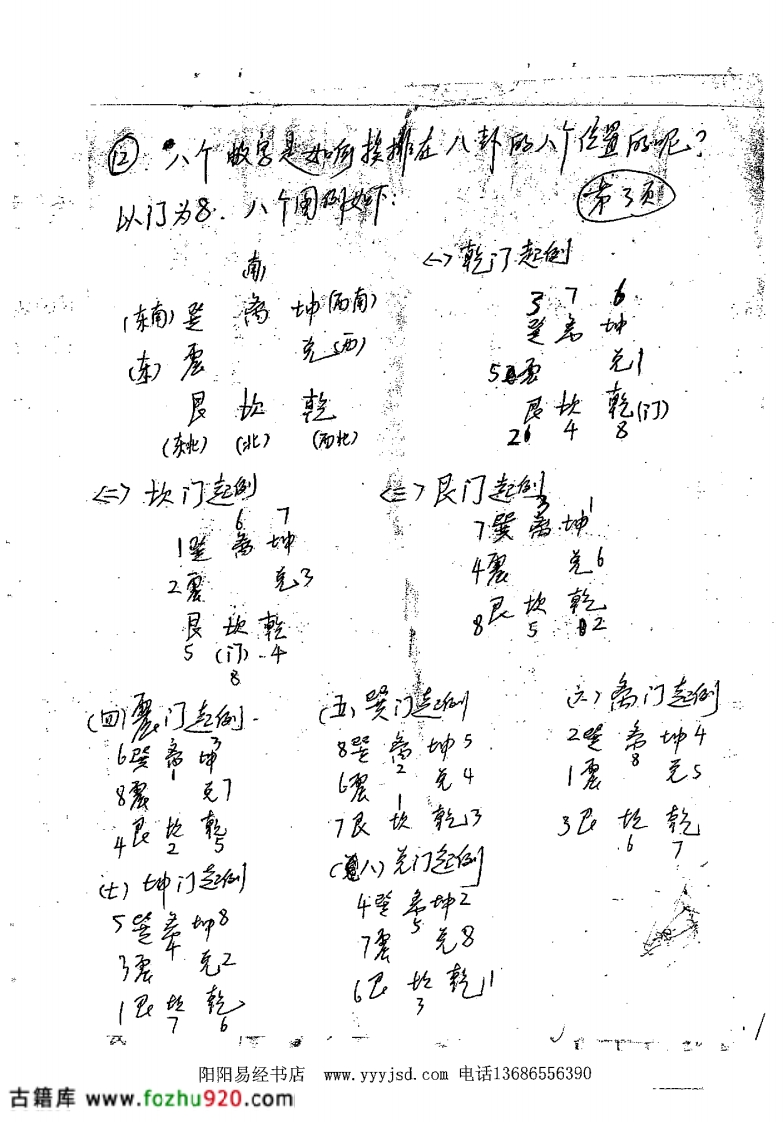 ⑫ 八个数字是如何挨排在八卦的八个位置的呢?
第3页
以门为8. 八个图例如下:
南
(东南) 巽 离 坤 (西南)
(东) 震 兑 (西)
艮 坎 乾
(东北) (北) (西北)
<一> 乾门起例
3 7 6
巽 离 坤
5 震 兑 1
艮 坎 乾 (门)
2 4 8
<二> 坎门起例
6 7
1 巽 离 坤
2 震 兑 3
艮 坎 乾
5 (门) 4
8
<三> 艮门起例
3 1
7 巽 离 坤
4 震 兑 6
8 艮 坎 乾
5 2
(四) 震门起例
3
6 巽 离 坤
1
8 震 兑 7
4 艮 坎 乾
2 5
(五) 巽门起例
8 巽 离 坤 5
2
6 震 兑 4
1
7 艮 坎 乾 3
(六) 离门起例
2 巽 离 坤 4
8
1 震 兑 5
3 艮 坎 乾
6 7
(七) 坤门起例
5 巽 离 坤 8
4
3 震 兑 2
1 艮 坎 乾
7 6
(八) 兑门起例
4 巽 离 坤 2
5
7 震 兑 8
6 艮 坎 乾 1
3
阳阳易经书店 www.yyyjsd.com 电话13686556390
古籍库 www.fozhu920.com